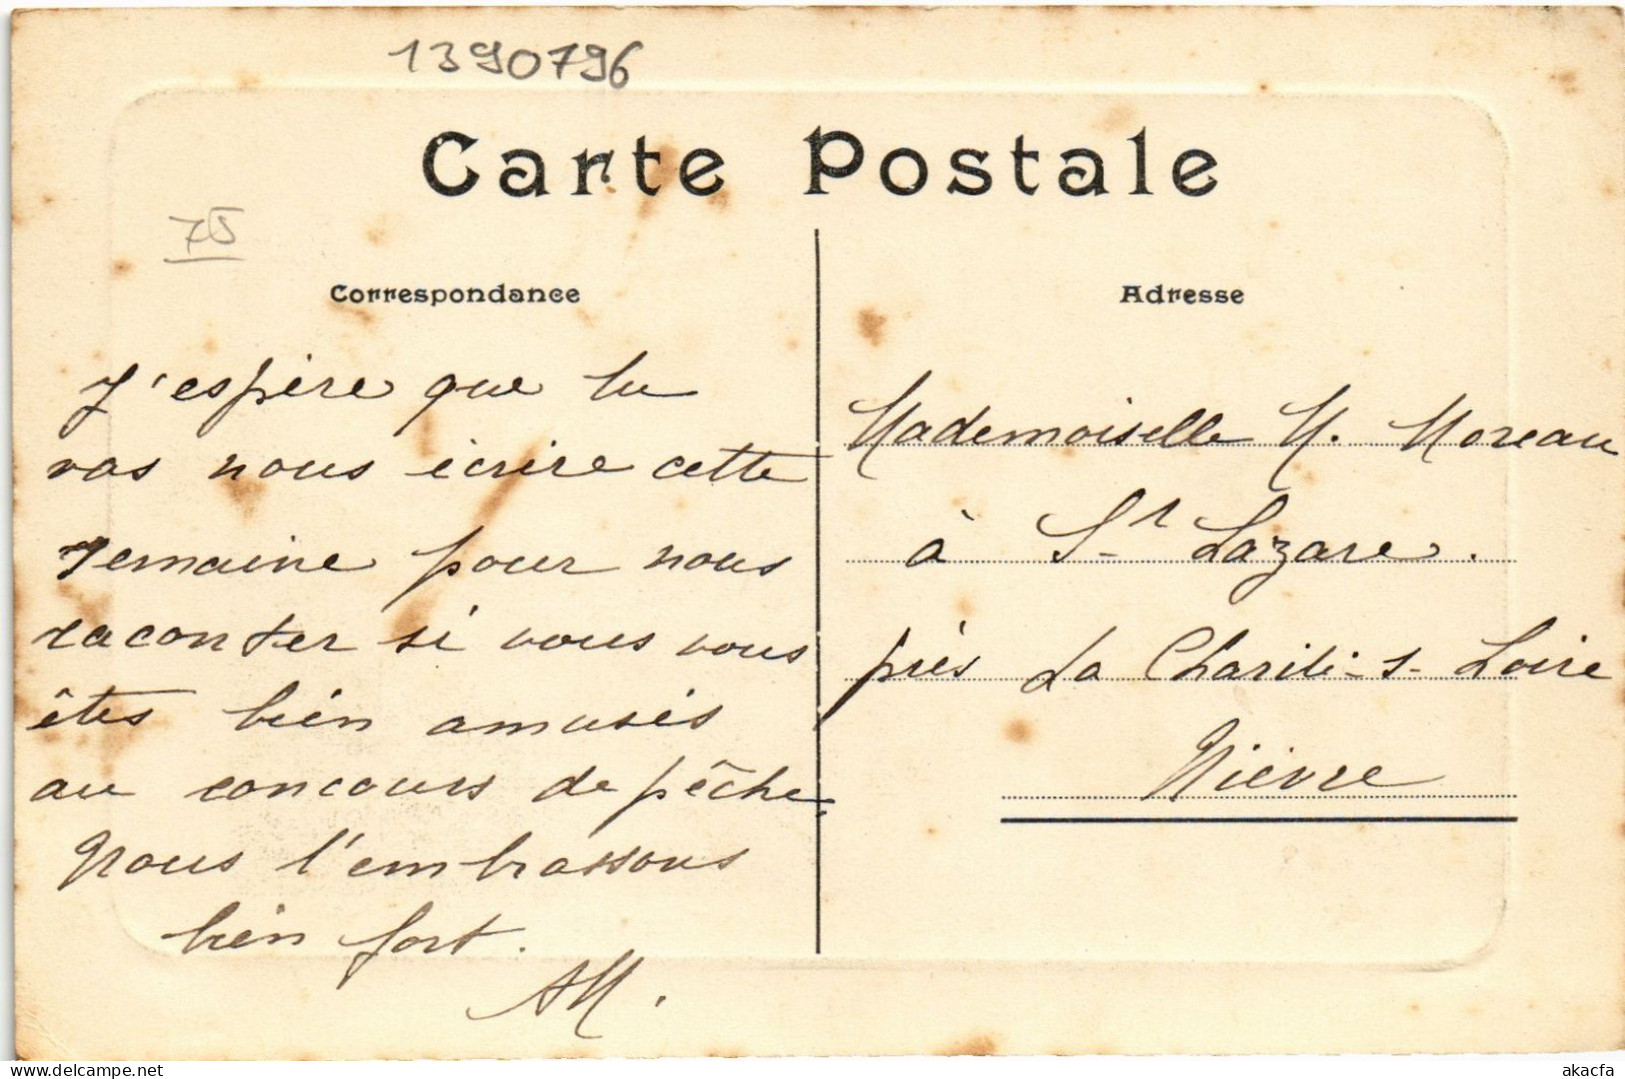 1390796
Carte Postale
75
Correspondance
J'espère que tu
vas nous écrire cette
semaine pour nous
raconter si vous vous
êtes bien amusés
au concours de pêche.
Nous t'embrassons
bien fort.
AM.
Adresse
Mademoiselle M. Moreau
à St Lazare.
près La Charité-s-Loire
Nièvre
akacfa